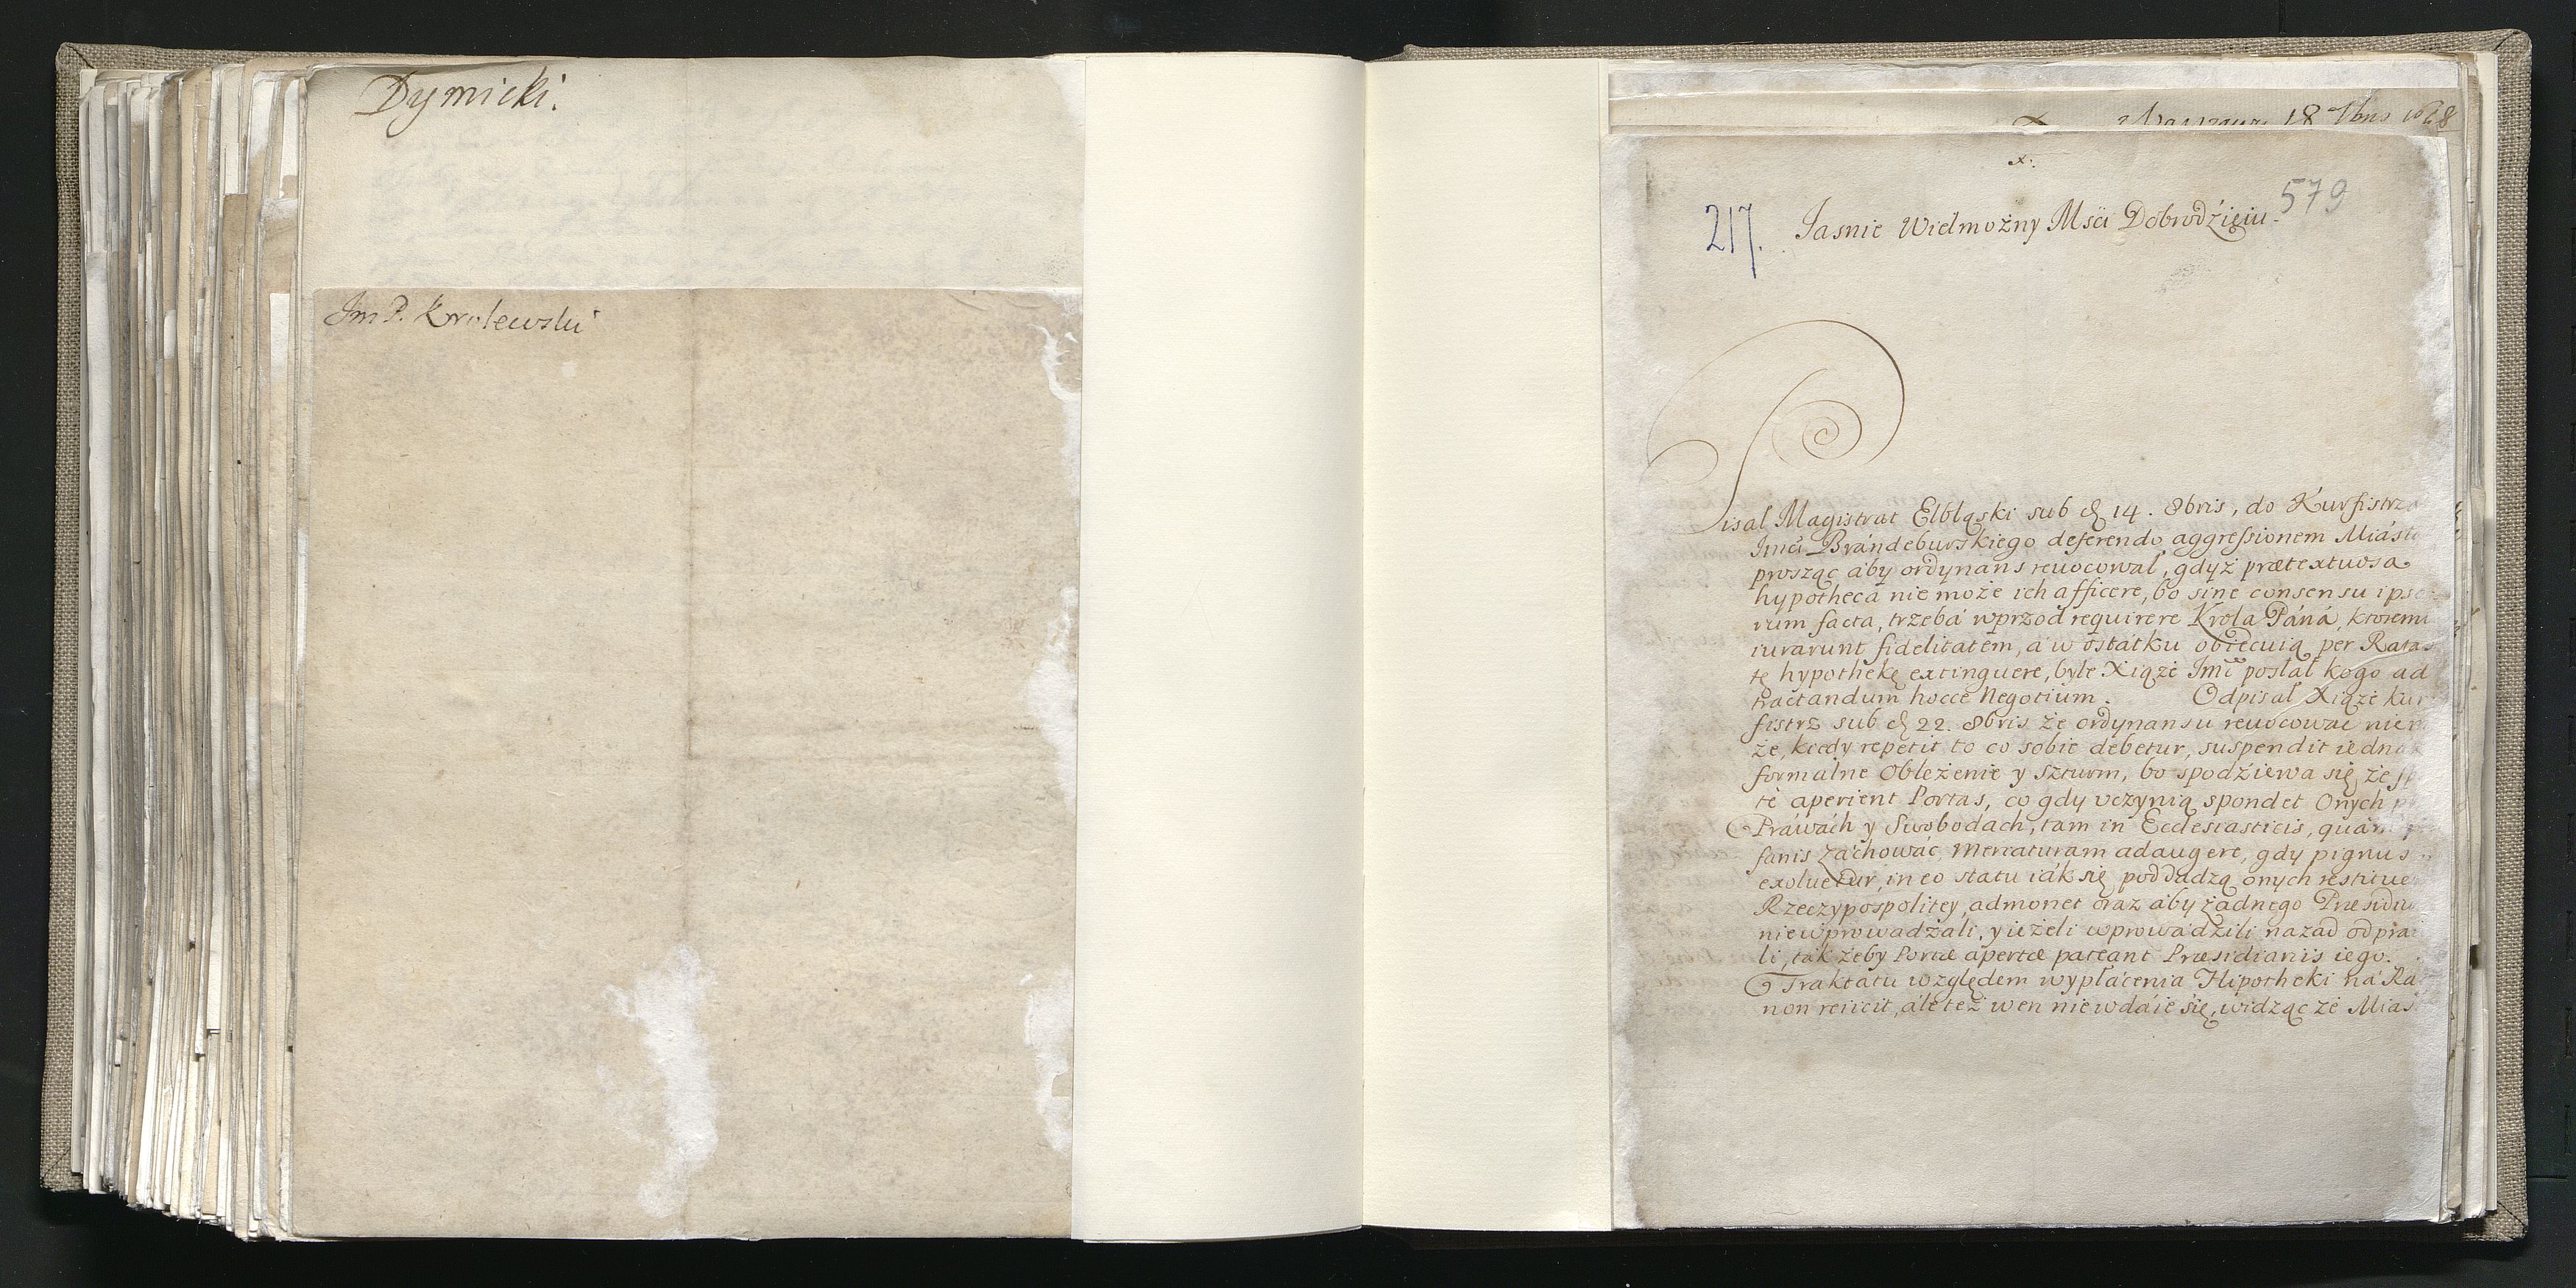 Dymicki.
Jm P. Krolewski
Warszawy 18 7bris 1698
x.
579
217. Jasnie Wielmożny Msci Dobrodźieiu.
Pisał Magistrat Elbląski sub d 14. 8bris, do Kurfistrza
Jmci Brándeburskiego deferendo aggressionem Miásta
prosząc áby ordynans reuocował, gdyż prætextuosa
hypotheca nie może ich afficere, bo sine consensu ipso
rum facta, trzebá wprzod requirere Krola Páná, ktoremu
iurarunt fidelitatem, a w ostátku obiecuią per Ratas
tę hypothekę extinguere, byle Xiąże Jmć posłał kogo ad
tractandum hocce Negotium. Odpisał Xiąże kur
fistrz sub d 22. 8bris że ordynansu reuocowác nie
że, kiedy repetit to co sobie debetur, suspendit iednak
formálne Oblężenie y szturm, bo spodźiewa się, że
te aperient Portas, co gdy vczynią spondet Onych
Práwách y Swobodách, tam in Ecclesiasticis, quám
fanis záchowác, Mercaturam adaugere, gdy pignus
exoluetur, in eo statu iák się poddadzą onych restitue
Rzeczypospolitey, admonet oraz áby żadnego Præsidiu
niewprowadżáli, y ieżeli wprowádźili nazad odprá
li, ták żeby Portæ apertæ pateant Præsidianis iego.
Traktatu względem wypłácenia Hipotheki ná Ra
non reiicit, ále też wen niewdáie się, widząc że Miás